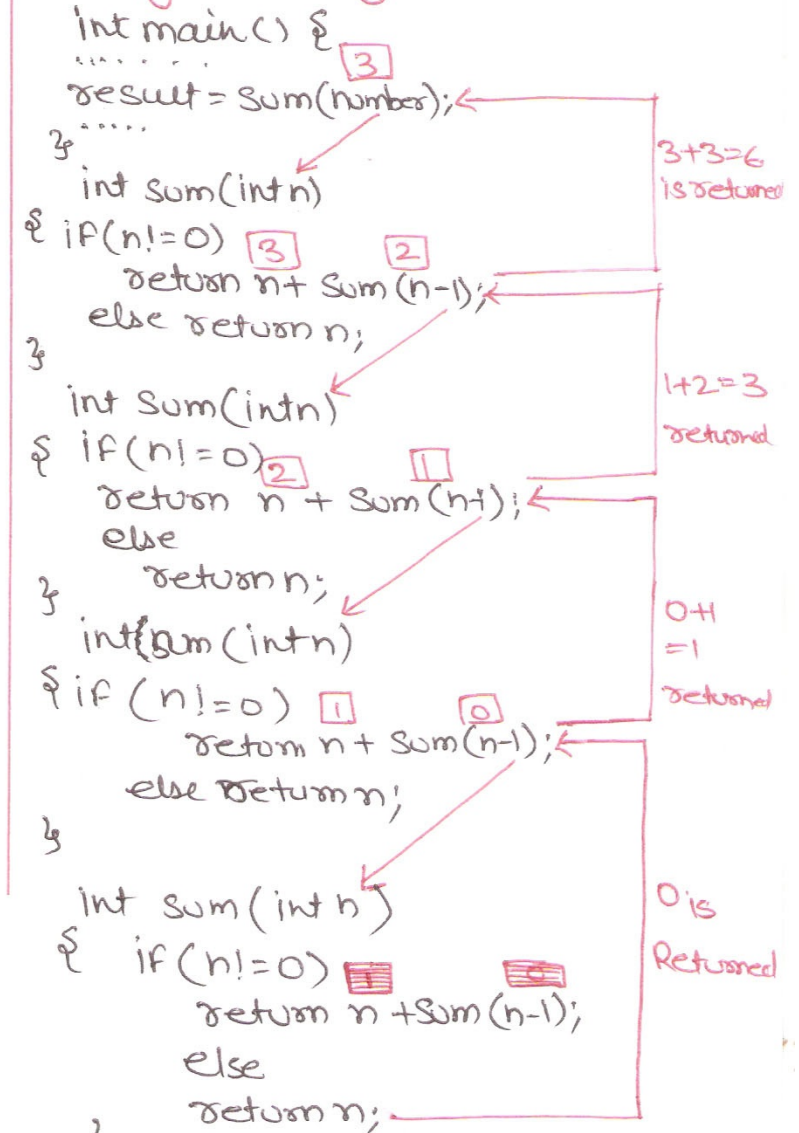 int main() {
.......
3
result = sum(number);
}.....
3+3=6
is returned
int sum(int n)
{ if(n!=0) 3 2
return n+ sum(n-1);
else return n;
}
1+2=3
returned
int sum(int n)
{ if(n!=0) 2 1
return n + sum(n-1);
else
return n;
}
0+1
=1
returned
int sum(int n)
{ if(n!=0) 1 0
return n + sum(n-1);
else return n;
}
int sum(int n)
0 is
Returned
{ if(n!=0)
return n +sum(n-1);
else
return n;